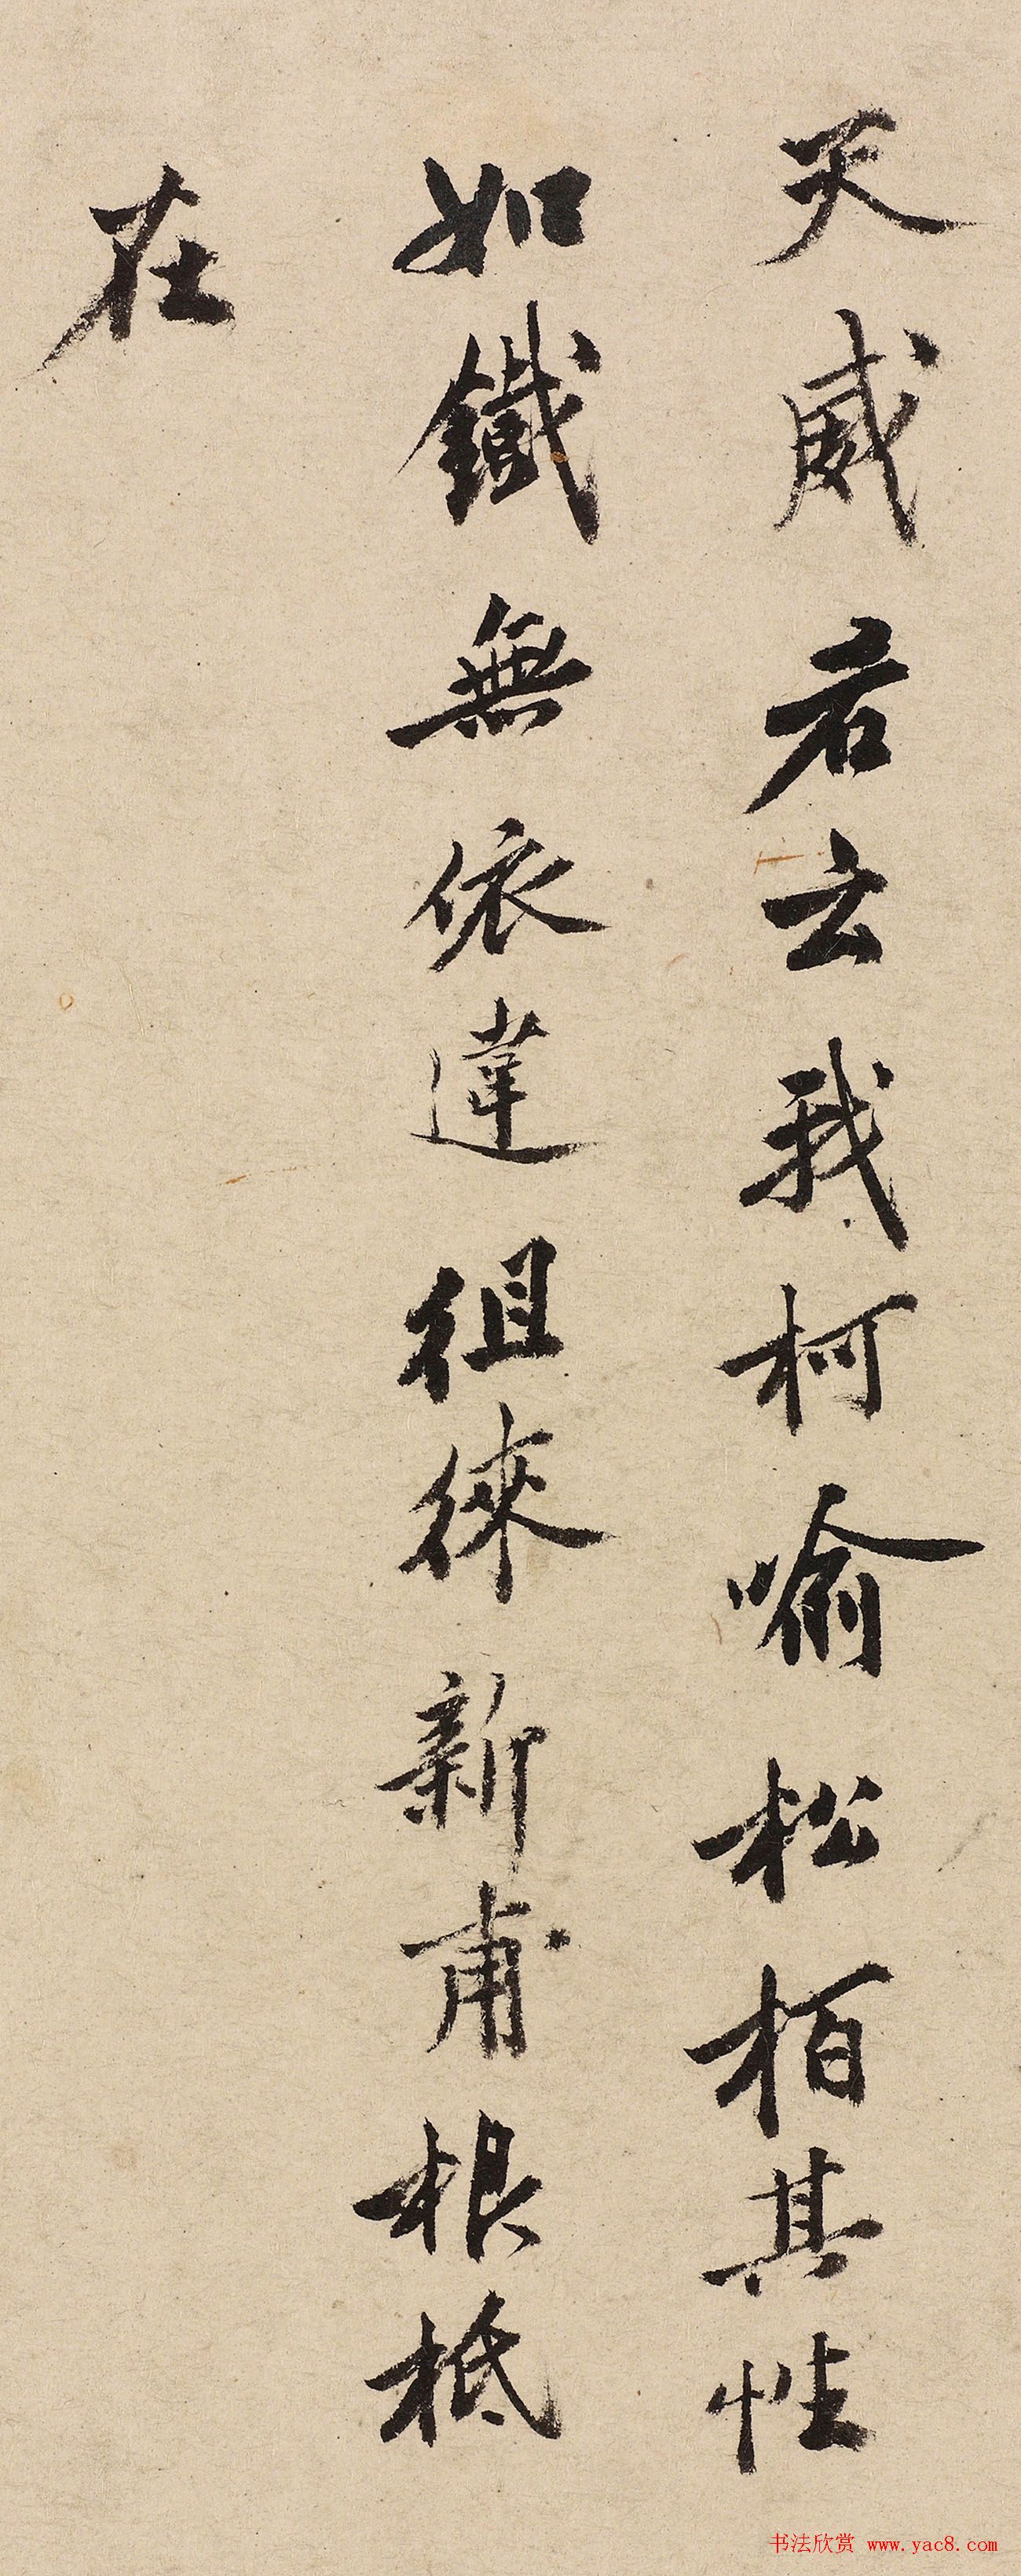 天威君云我柯喻松栢其性
如鐵無依違徂徠新甫根柢
在
书法欣赏 www.yac8.com